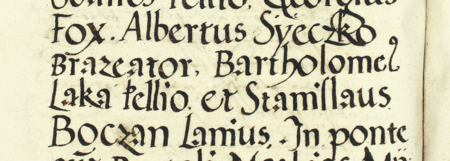 Fox. Albertus Syeczko,
Brazeator, Bartholome9
Laka tellio. et Stanislaus
Boczan Lanius. In ponte